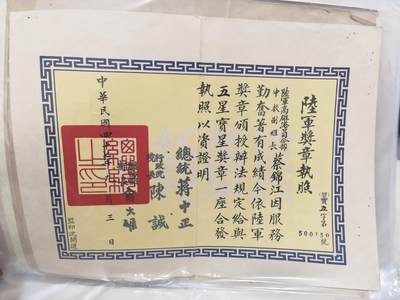 陸軍獎章執照
陸軍高雄營司令部
中校副組長
蔡錦江因服務
勤奮著有成績今依陸軍
獎章頒授辦法規定給與
五星寶星獎章一座合發
執照以資證明
總統蔣中正
行政院院長陳誠
中華民國四十
年
月三日
500150號
監印沈開運